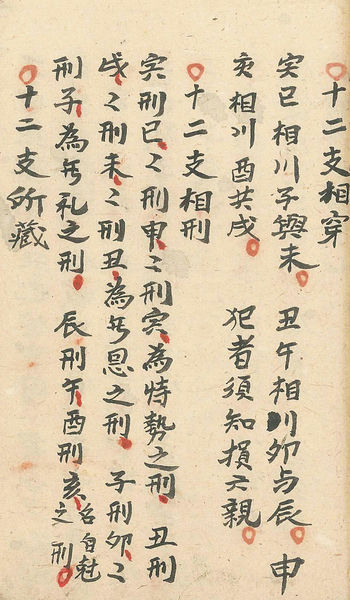 〇十二支相穿
寅巳相川子與未 丑午相川卯与辰 申
亥相川酉共戌〇 犯者須知損六親〇
〇十二支相刑
寅刑巳〻刑申〻刑寅為恃勢之刑 丑刑
戌〻刑未〻刑丑為无恩之刑 子刑卯〻
刑子為无礼之刑 辰刑午酉刑亥名自之刑
〇十二支所藏